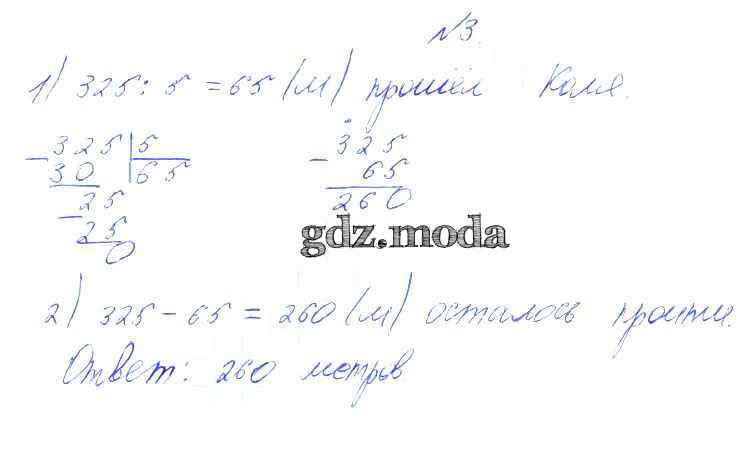 №3.
1) 325 : 5 = 65 (м) прошёл Коля.
325 | 5
30 | 65
25
25
0
325
- 65
260
gdz.moda
2) 325 - 65 = 260 (м) осталось пройти.
Ответ: 260 метров